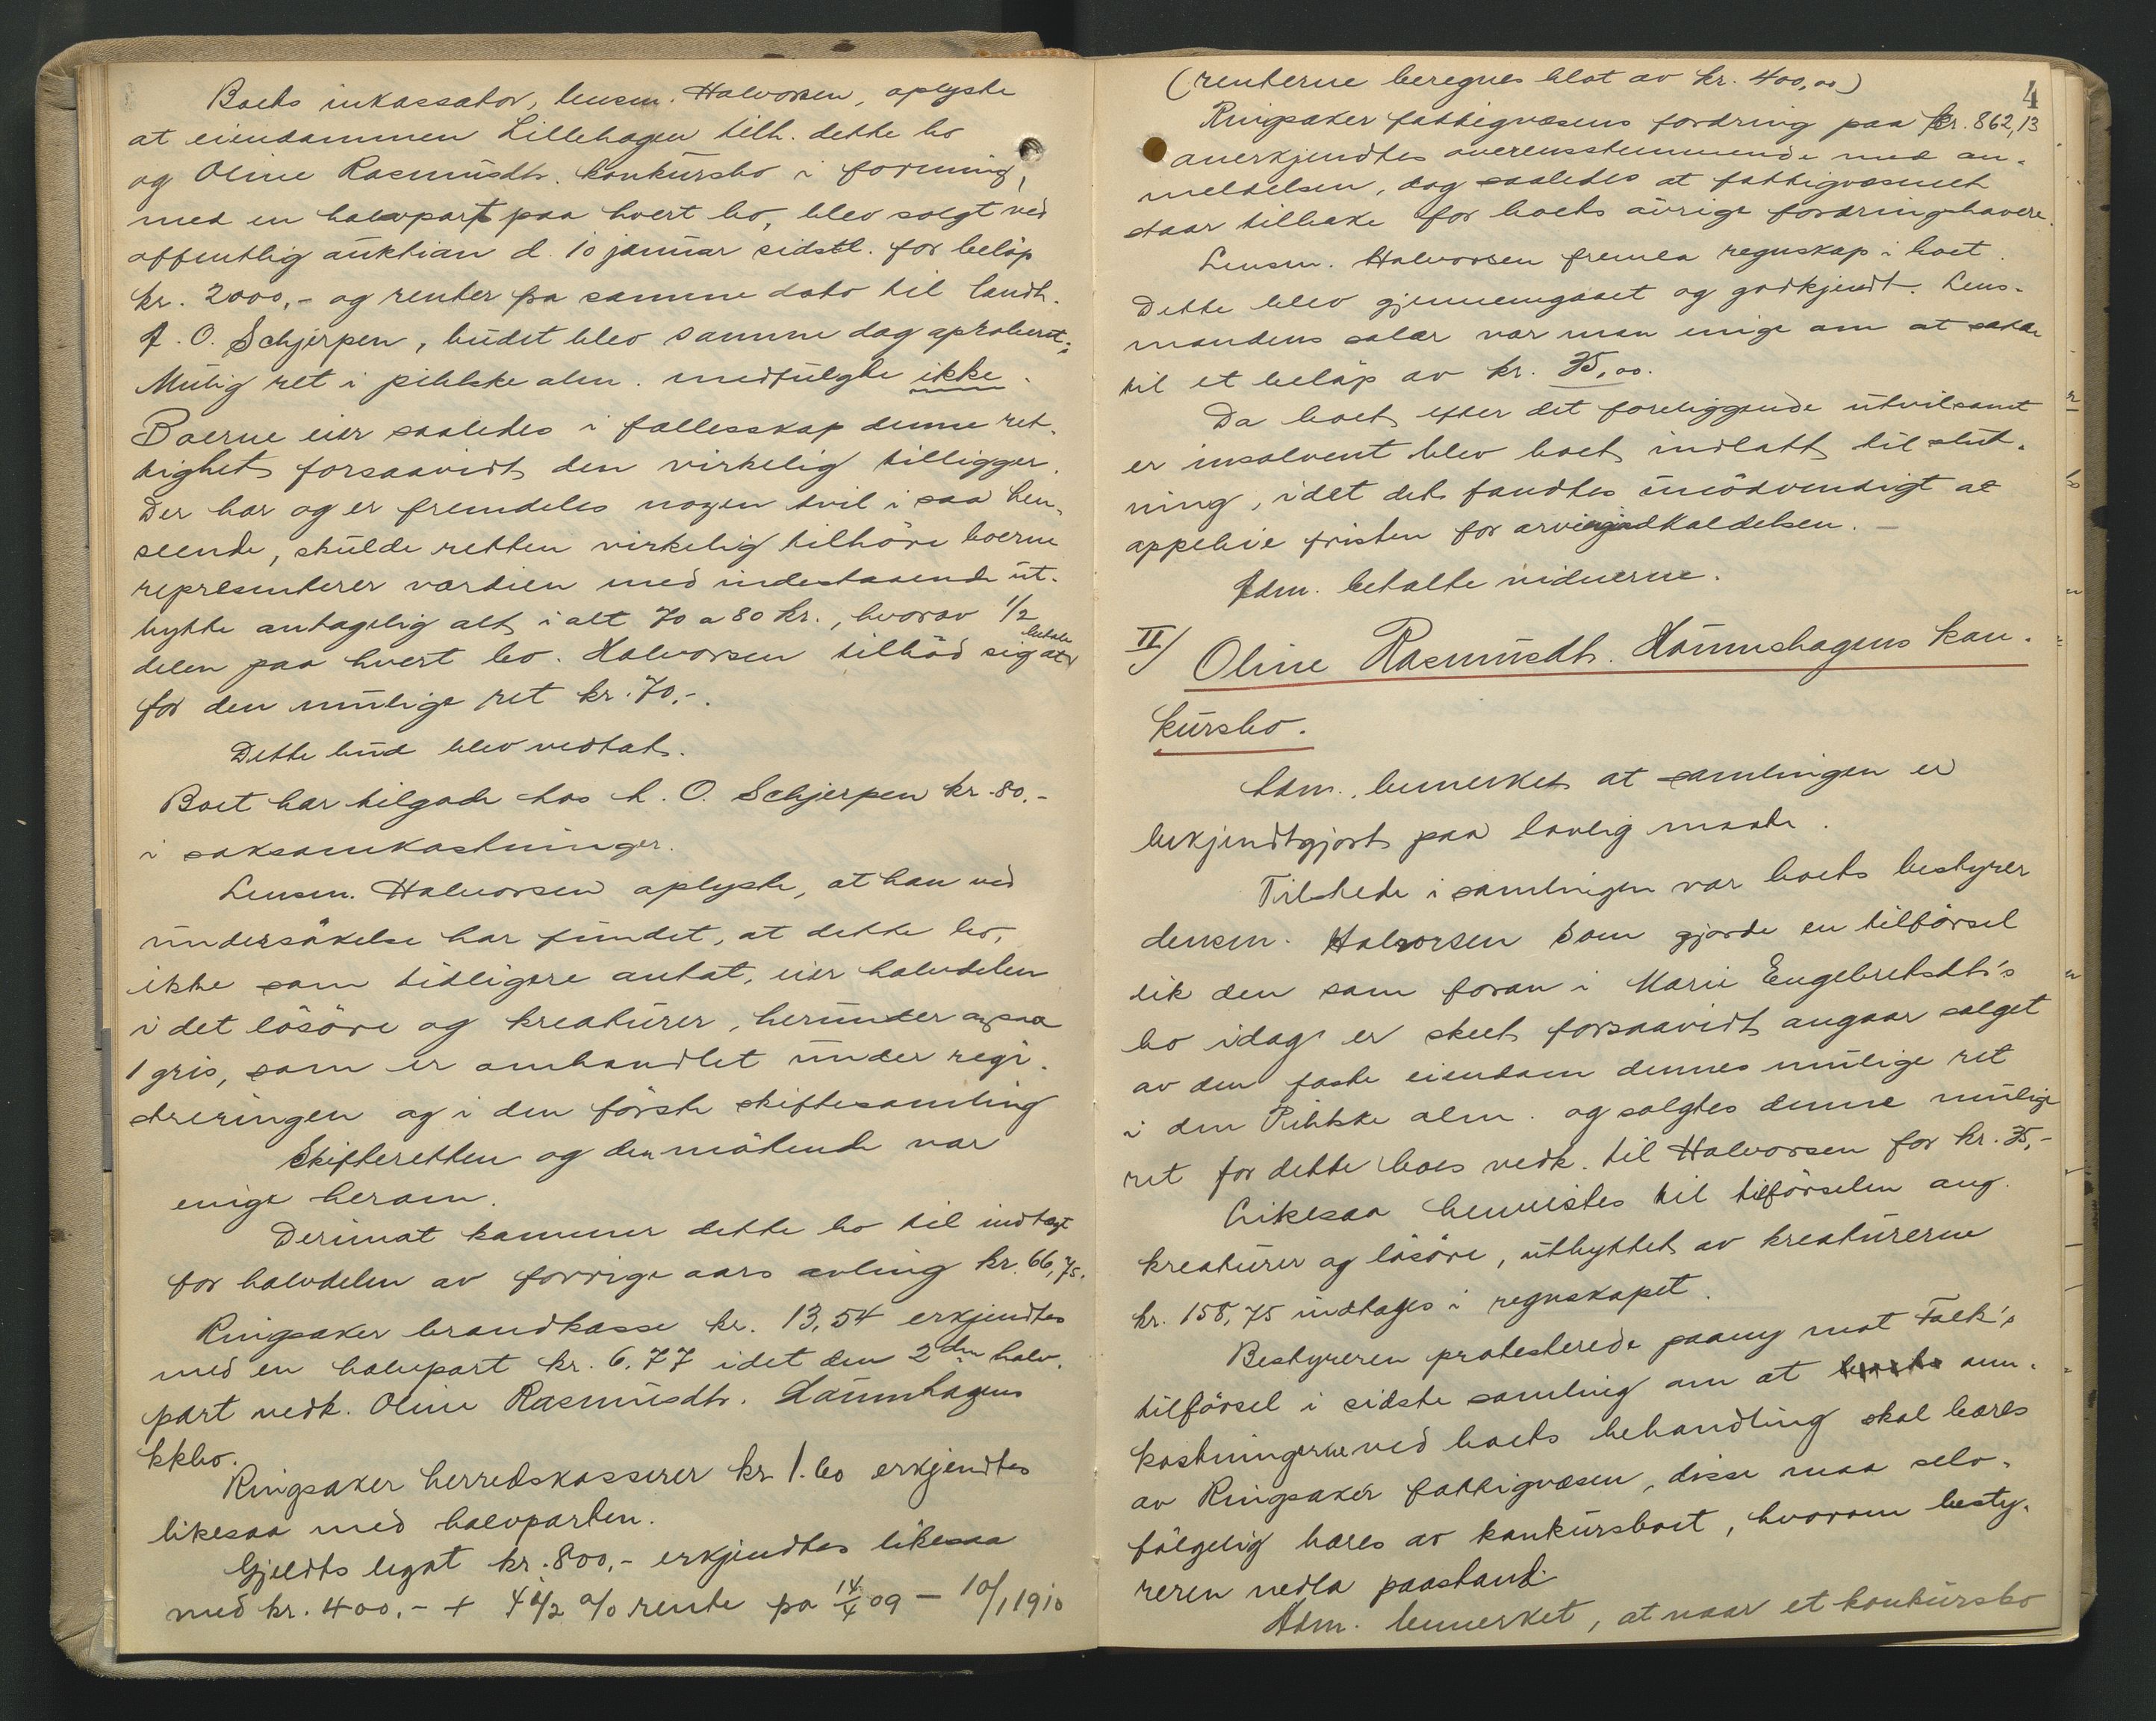 Boets inkassator, lensm. Halvorsen, oplyste
at eiendommen Lillehagen tilh. dette bo
og Oline Rasmusdtr. konkursbo i forening,
med en halvpart paa hvert bo, blev solgt ved
offentlig auktion d. 10 januar sidstl. for beløp
kr. 2000,- og renter fra samme dato til landh.
A. O. Schjerpen, budet blev samme dag aproberet;
Mulig ret i pihlske alm. medfulgte ikke.
Boerne eier saaledes i fællesskap denne ret-
tighet forsaavidt den virkelig tilligger.
Der har og er fremdeles nogen tvil i saa hen-
seende, skulde retten virkelig tilhöre boerne
representerer værdien med indestaaende ut-
bytte antagelig alt i alt 70 a 80 kr., hvorav 1/2
delen paa hvert bo. Halvorsen tilböd sig at betale
for den mulige ret kr. 70,-.
Dette bud blev vedtat.
Boet har tilgode hos A. O. Schjerpen kr. 80,-
i saksomkostninger.
Lensm. Halvorsen oplyste, at han ved
undersökelse har fundet, at dette bo,
ikke som tidligere antat, eier halvdelen
i det lösöre og kreaturer, herunder ogsaa
1 gris, som er omhandlet under regi-
streringen og i den förste skiftesamling
Skifteretten og den mötende var
enige herom.
Derimot kommer dette bo til indtægt
for halvdelen av forrige aars avling kr. 66,75.
Ringsaker brandkasse kr. 13,54 erkjendtes
med en halvpart kr. 6,77 idet den 2den halv-
part vedk. Oline Rasmusdtr. Lömnshagens
kkbo.
Ringsaker herredskasserer kr 1.60 erkjendtes
likesaa med halvparten.
Gjeldts legat kr. 800,- erkjendtes likesaa
med kr. 400,- + 4 1/2 % rente fra 14/4 09 – 10/1 1910
4
(renterne beregnes blot av kr. 400,00)
Ringsaker fattigvæsens fordring paa kr. 862,13
anerkjendtes overensstemmende med an-
meldelsen, dog saaledes at fattigvæsenet
staar tilbake for boets övrige fordringshavere.
Lensm. Halvorsen fremla regnskap i boet.
Dette blev gjennemgaaet og godkjendt. Lens-
mandens salær var man enige om at sætte
til et beløp av kr. 35,00.
Da boet efter det foreliggende utvilsomt
er insolvent blev boet indlatt til slut-
ning, idet det fandtes unödvendigt at
oppebie fristen for arvingindkaldelsen. –
Adm. betalte vidnerne.
II/ Oline Rasmusdtr. Lömnshagens kon-
kursbo.
Adm. bemerket at samlingen er
bekjendtgjort paa lovlig maate.
Tilstede i samlingen var boets bestyrer
lensm. Halvorsen som gjorde en tilförsel
lik den som foran i Marie Engebretsdtr's
bo idag er skeet forsaavidt angaar salget
av den faste eiendom dennes mulige ret
i den Pihlske alm. og solgtes denne mulige
ret for dette boes vedk. til Halvorsen for kr. 35,-
Likesaa henvistes til tilförselen ang.
kreaturer og lösöre, utbyttet av kreaturerne
kr. 158,75 indtages i regnskapet.
Bestyreren protesterede paany mot Falk's
tilförsel i sidste samling om at om-
kostningerne ved boets behandling skal bæres
av Ringsaker fattigvæsen, disse maa selv-
fölgelig bæres av konkursboet, hvorom besty-
reren nedla paastand.
Adm. bemerket, at naar et konkursbo